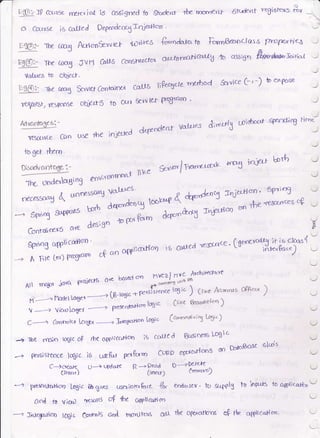 Eg②:- If Course material is assigned to Student the moment student registers for
a Course is called Dependency Injection.
Eg③:- The way ActionServlet writes formdata to FormBeanclass properties
Eg④:- The way JVM calls constructor automatically to assign Initial
Values to object.
Eg⑤:- The way Servlet Container calls lifecycle method Service (-,-) to expose
request, response objects to our servlet program.
Advantages:-
resource can use the injected dependent values directly without spending time
to get them.
Disadvantage:-
The underlaying environment like Server/Framework may inject both
necessary & unnessary values.
→ Spring Supposes both dependency lookup & dependency Injection. Spring
Containers are design to perform dependency Injection on the resources of
Spring application.
→ A File (or) program of an application is called resource. (generally it is class/
interface)
All major Java projects are based on MVC2/MVC Architecture
M → Model Layer → (B.logic + persistence logic) (like Accounts Officer)
V → View Layer → presentation logic (like Beautician)
C → Controller Layer → Integration Logic (Connectivity Logic)
→ The main logic of the application is called Business Logic
→ persistence logic is useful perform CURD operations on DataBase
C→create U→update R→Read D→Delete
(insert) (select) (remove)
→ presentation logic gives userinterface for enduser to supply to inputs to application
and to view results of the application
→ Integration logic Controls and monitors all the operations of the application.